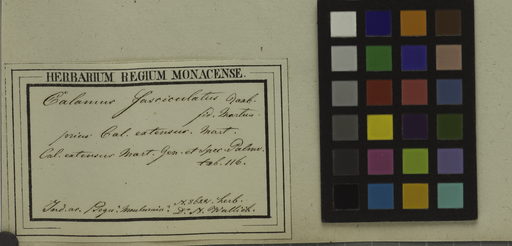 HERBARIUM REGIUM MONACENSE.
Calamus fasciculatus Roxb.
fid. Martius
prius Cal. extensus. Mart.
Cal. extensus Mart. Gen. et Spec. Palm.
tab. 116.
Ind. or.
herb.
Dr. N. Wallich.